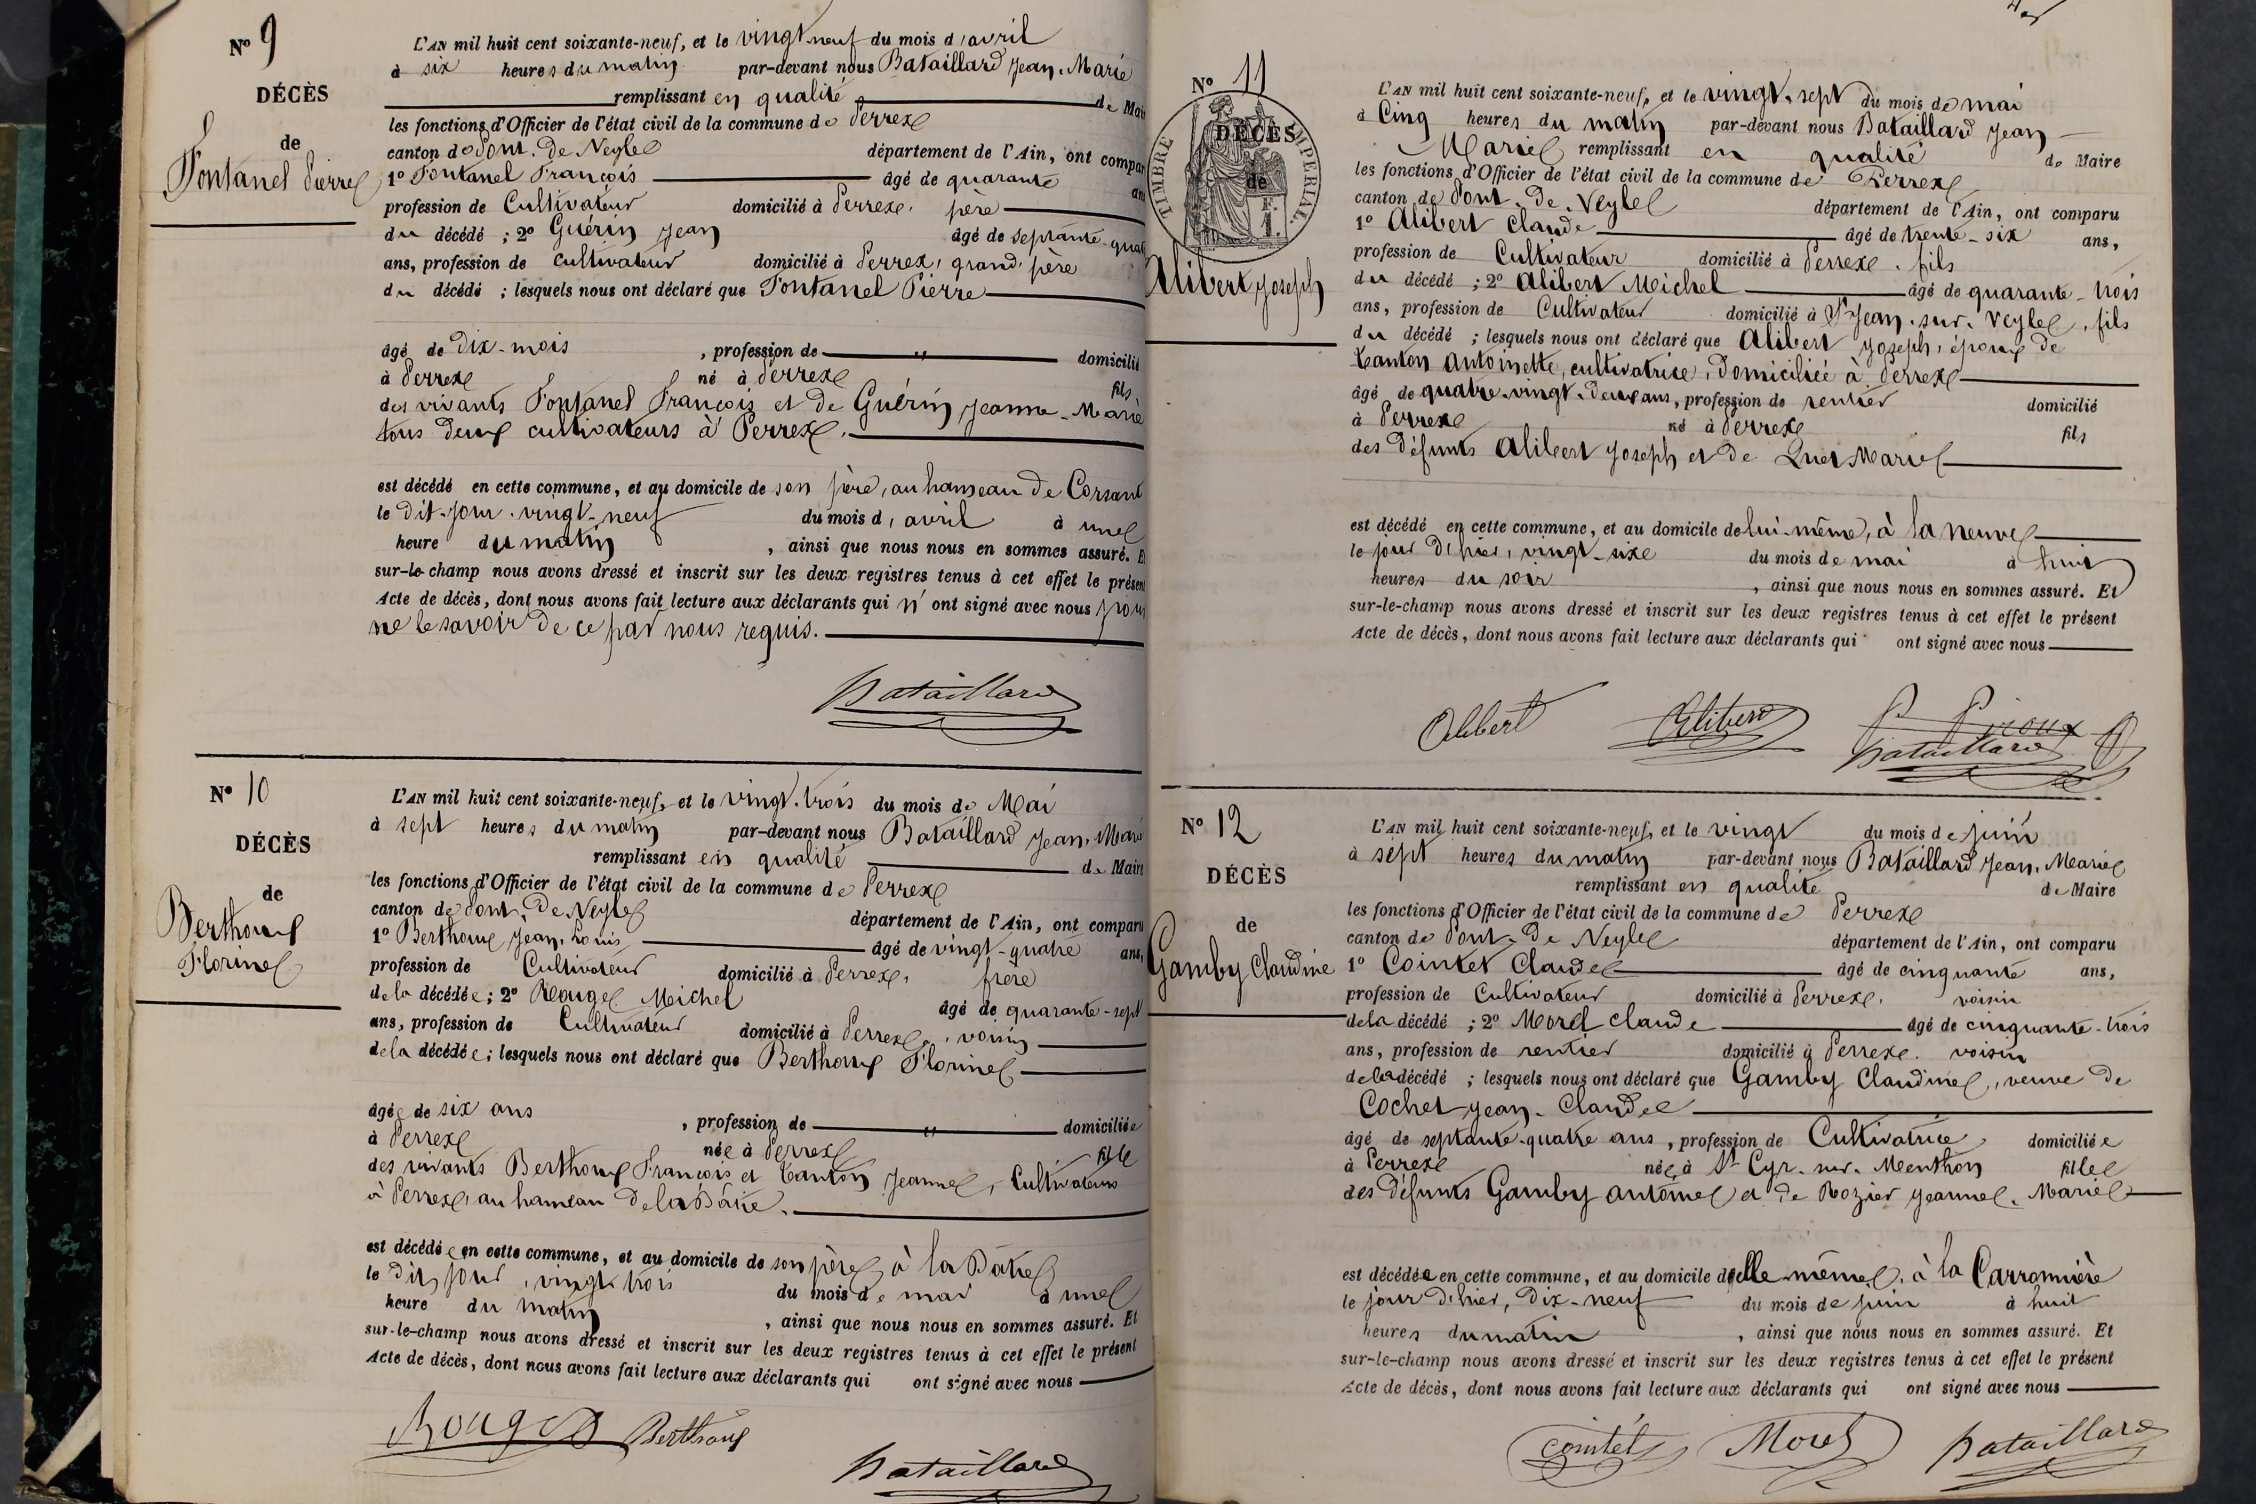 N° 9
DÉCÈS
de
Fontanel Pierre
L'AN mil huit cent soixante-neuf, et le vingt neuf du mois d'avril
à six heures du matin par-devant nous Bataillard Jean-Marie
remplissant en qualité de Mair
les fonctions d'Officier de l'état civil de la commune de Perrex
canton de Pont-de-Veyle département de l'Ain, ont compar
1° Fontanel François âgé de quarante an
profession de Cultivateur domicilié à Perrex, père
du décédé ; 2° Guérin Jean âgé de septante-quat
ans, profession de cultivateur domicilié à Perrex, grand-père
du décédé ; lesquels nous ont déclaré que Fontanel Pierre
âgé de dix-mois , profession de " domicilié
à Perrex né à Perrex fils
des vivants Fontanel François et de Guérin Jeanne-Marie
tous deux cultivateurs à Perrex.
est décédé en cette commune, et au domicile de son père, au hameau de Corsant
le dit-jour vingt-neuf du mois d'avril à une
heure du matin , ainsi que nous nous en sommes assuré. Et
sur-le-champ nous avons dressé et inscrit sur les deux registres tenus à cet effet le présent
Acte de décès, dont nous avons fait lecture aux déclarants qui n'ont signé avec nous pour
ne le savoir de ce par nous requis.
Bataillard
N° 10
DÉCÈS
de
Berthoux
Florine
L'AN mil huit cent soixante-neuf, et le vingt-trois du mois de Mai
à sept heures du matin par-devant nous Bataillard Jean-Mari
remplissant en qualité de Mair
les fonctions d'Officier de l'état civil de la commune de Perrex
canton de Pont-de-Veyle département de l'Ain, ont comparu
1° Berthoux Jean-Louis âgé de vingt-quatre ans,
profession de Cultivateur domicilié à Perrex, frère
de la décédée ; 2° Rouge Michel âgé de quarante-sept
ans, profession de Cultivateur domicilié à Perrex, voisin
de la décédée ; lesquels nous ont déclaré que Berthoux Florine
âgée de six ans , profession de " domiciliée
à Perrex née à Perrex fille
des vivants Berthoux François et Tanton Jeanne, Cultivateurs
à Perrex, au hameau de la Bâtie.
est décédée en cette commune, et au domicile de son père, à la Bâtie
le dit jour, vingt-trois du mois de mai à une
heure du matin , ainsi que nous nous en sommes assuré. Et
sur-le-champ nous avons dressé et inscrit sur les deux registres tenus à cet effet le présent
Acte de décès, dont nous avons fait lecture aux déclarants qui ont signé avec nous
Rouge Berthoux
Bataillard
N° 11
TIMBRE IMPERIAL
F. 1.
DÉCÈS
de
Alibert Joseph
L'AN mil huit cent soixante-neuf, et le vingt-sept du mois de mai
à Cinq heures du matin par-devant nous Bataillard Jean
Marie remplissant en qualité de Maire
les fonctions d'Officier de l'état civil de la commune de Perrex
canton de Pont-de-Veyle département de l'Ain, ont comparu
1° Alibert Claude âgé de trente-six ans,
profession de Cultivateur domicilié à Perrex, fils
du décédé ; 2° Alibert Michel âgé de quarante-trois
ans, profession de Cultivateur domicilié à St Jean-sur-Veyle, fils
du décédé ; lesquels nous ont déclaré que Alibert Joseph, époux de
Tanton Antoinette, cultivatrice, domiciliée à Perrex
âgé de quatre-vingt-deux ans, profession de rentier domicilié
à Perrex né à Perrex fils
des défunts Alibert Joseph et de Marie
est décédé en cette commune, et au domicile de lui-même, à la neuve
le jour d'hier, vingt-six du mois de mai à huit
heures du soir , ainsi que nous nous en sommes assuré. Et
sur-le-champ nous avons dressé et inscrit sur les deux registres tenus à cet effet le présent
Acte de décès, dont nous avons fait lecture aux déclarants qui ont signé avec nous
Alibert Alibert Piroux
Bataillard
N° 12
DÉCÈS
de
Gamby Claudine
L'AN mil huit cent soixante-neuf, et le vingt du mois de juin
à sept heures du matin par-devant nous Bataillard Jean-Marie
remplissant en qualité de Maire
les fonctions d'Officier de l'état civil de la commune de Perrex
canton de Pont-de-Veyle département de l'Ain, ont comparu
1° Cointet Claude âgé de cinquante ans,
profession de Cultivateur domicilié à Perrex, voisin
de la décédé ; 2° Morel Claude âgé de cinquante-trois
ans, profession de rentier domicilié à Perrex. voisin
de la décédé ; lesquels nous ont déclaré que Gamby Claudine, veuve de
Cochet Jean-Claude
âgé de septante-quatre ans , profession de Cultivatrice, domiciliée
à Perrex née à St Cyr-sur-Menthon fille
des défunts Gamby Antoine et de Rozier Jeanne-Marie
est décédée en cette commune, et au domicile d'elle-même, à la Carronnière
le jour d'hier, dix-neuf du mois de juin à huit
heures du matin , ainsi que nous nous en sommes assuré. Et
sur-le-champ nous avons dressé et inscrit sur les deux registres tenus à cet effet le présent
Acte de décès, dont nous avons fait lecture aux déclarants qui ont signé avec nous
Cointet Morel Bataillard